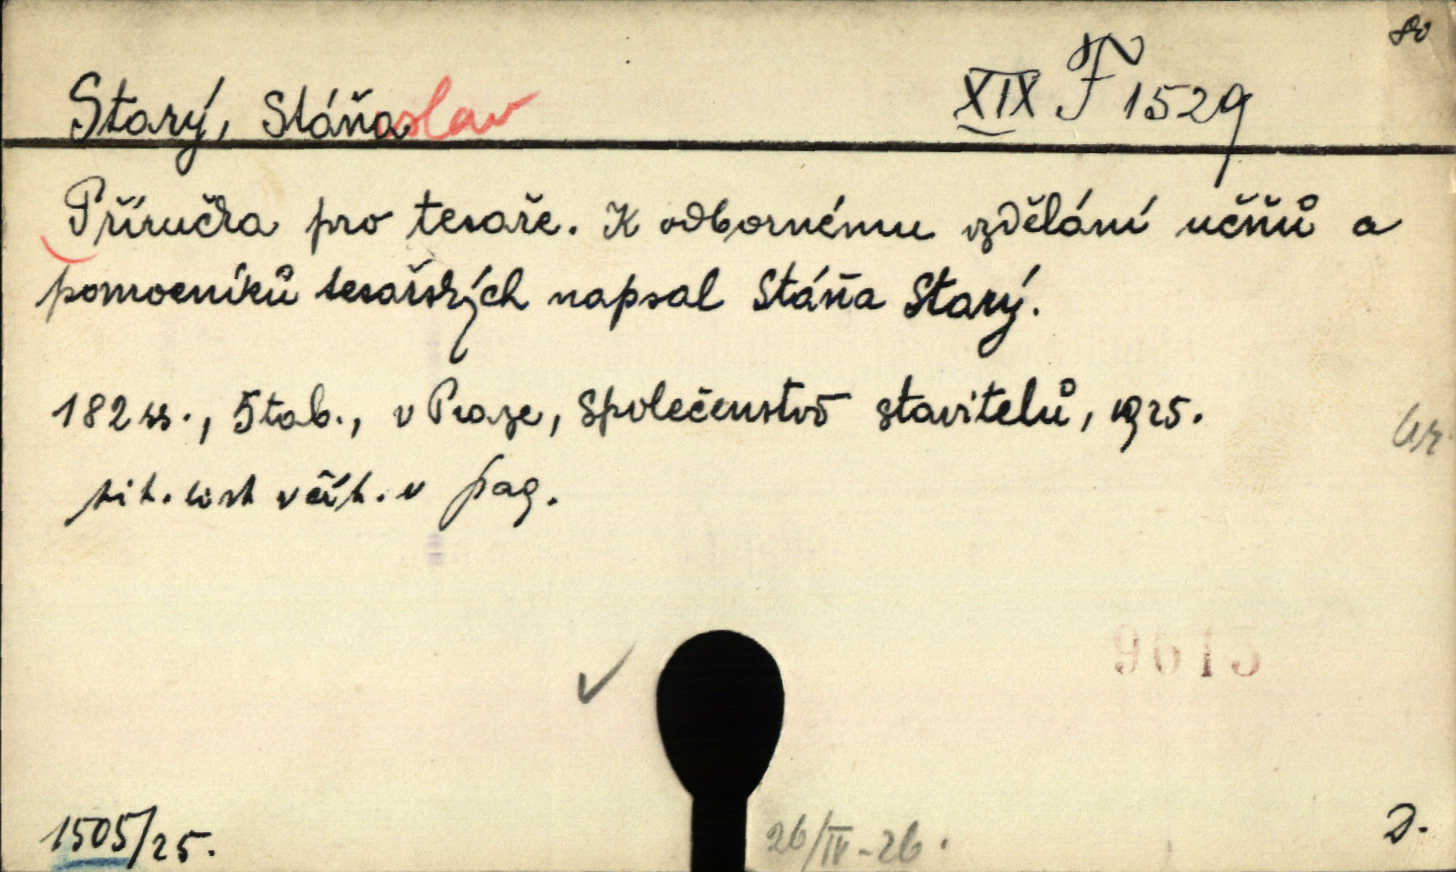 80
Starý, Stáňaslav
XIX F 1529
Příručka pro tesaře. K odbornému vzdělání učňů a
pomocníků tesařských napsal Stáňa Starý.
182 ss., 5 tab., v Praze, Společenstvo stavitelů, 1925.
tit. list včít. v pag.
9615
1505/25.
26/IV-26.
D.